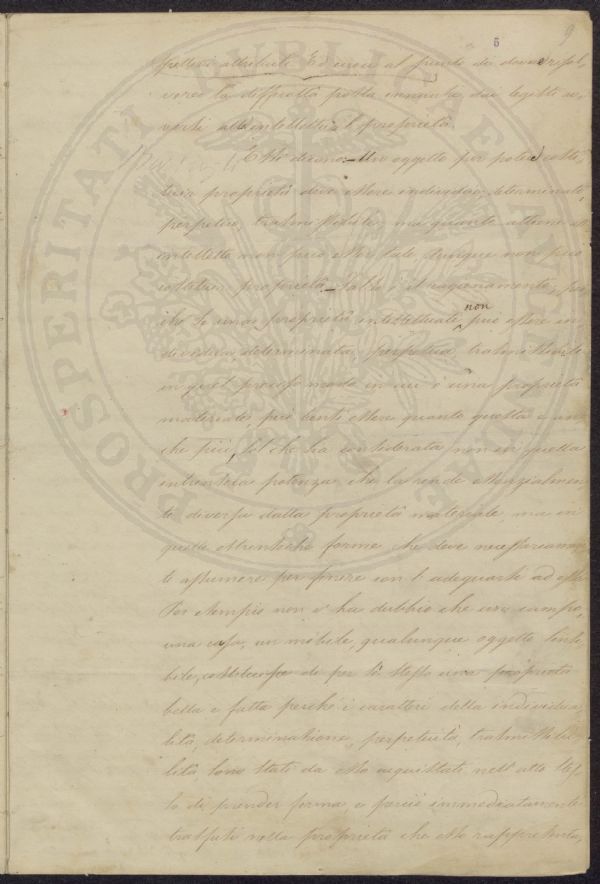 5
9
spettivi attributi. Ed ecco al punto di dover risol,
vere la difficoltà posta innanzi dai legisti av,
versi alla intellettual proprietà.
Essi dicono: Un oggetto per poter costi,
tuir proprietà deve essere individuo, determinato,
perpetuo, trasmissibile; ma quanto attiene all'
intelletto non può esser tale, dunque non può
costituir proprietà. Falso è il ragionamento, per
chè se una proprietà intellettuale non può essere in
dividua, determinata, perpetua, trasmissibile
in quel preciso modo in cui è una proprietà
materiale, può bensì essere quanto questa e an
che più, sol che sia considerata non in quella
intrinseca potenza che la rende essenzialmen,
te diversa dalla proprietà materiale, ma in
quelle estrinseche forme che deve necessariamen
te assumere per finire con l'adeguarsi ad essa.
Per esempio non v'ha dubbio che un campo,
una casa, un mobile, qualunque oggetto sensi,
bile, costituisce di per sè stesso una proprietà
bella e fatta perchè i caratteri della individua
lità, determinazione, perpetuità, trasmissibi
lità sono stati da esso acquistati nell'atto stes,
so di prender forma e perciò immediatamente
trasfusi nella proprietà che esso rappresenta,
PROSPERITATI PUBLICAE AUGENDAE